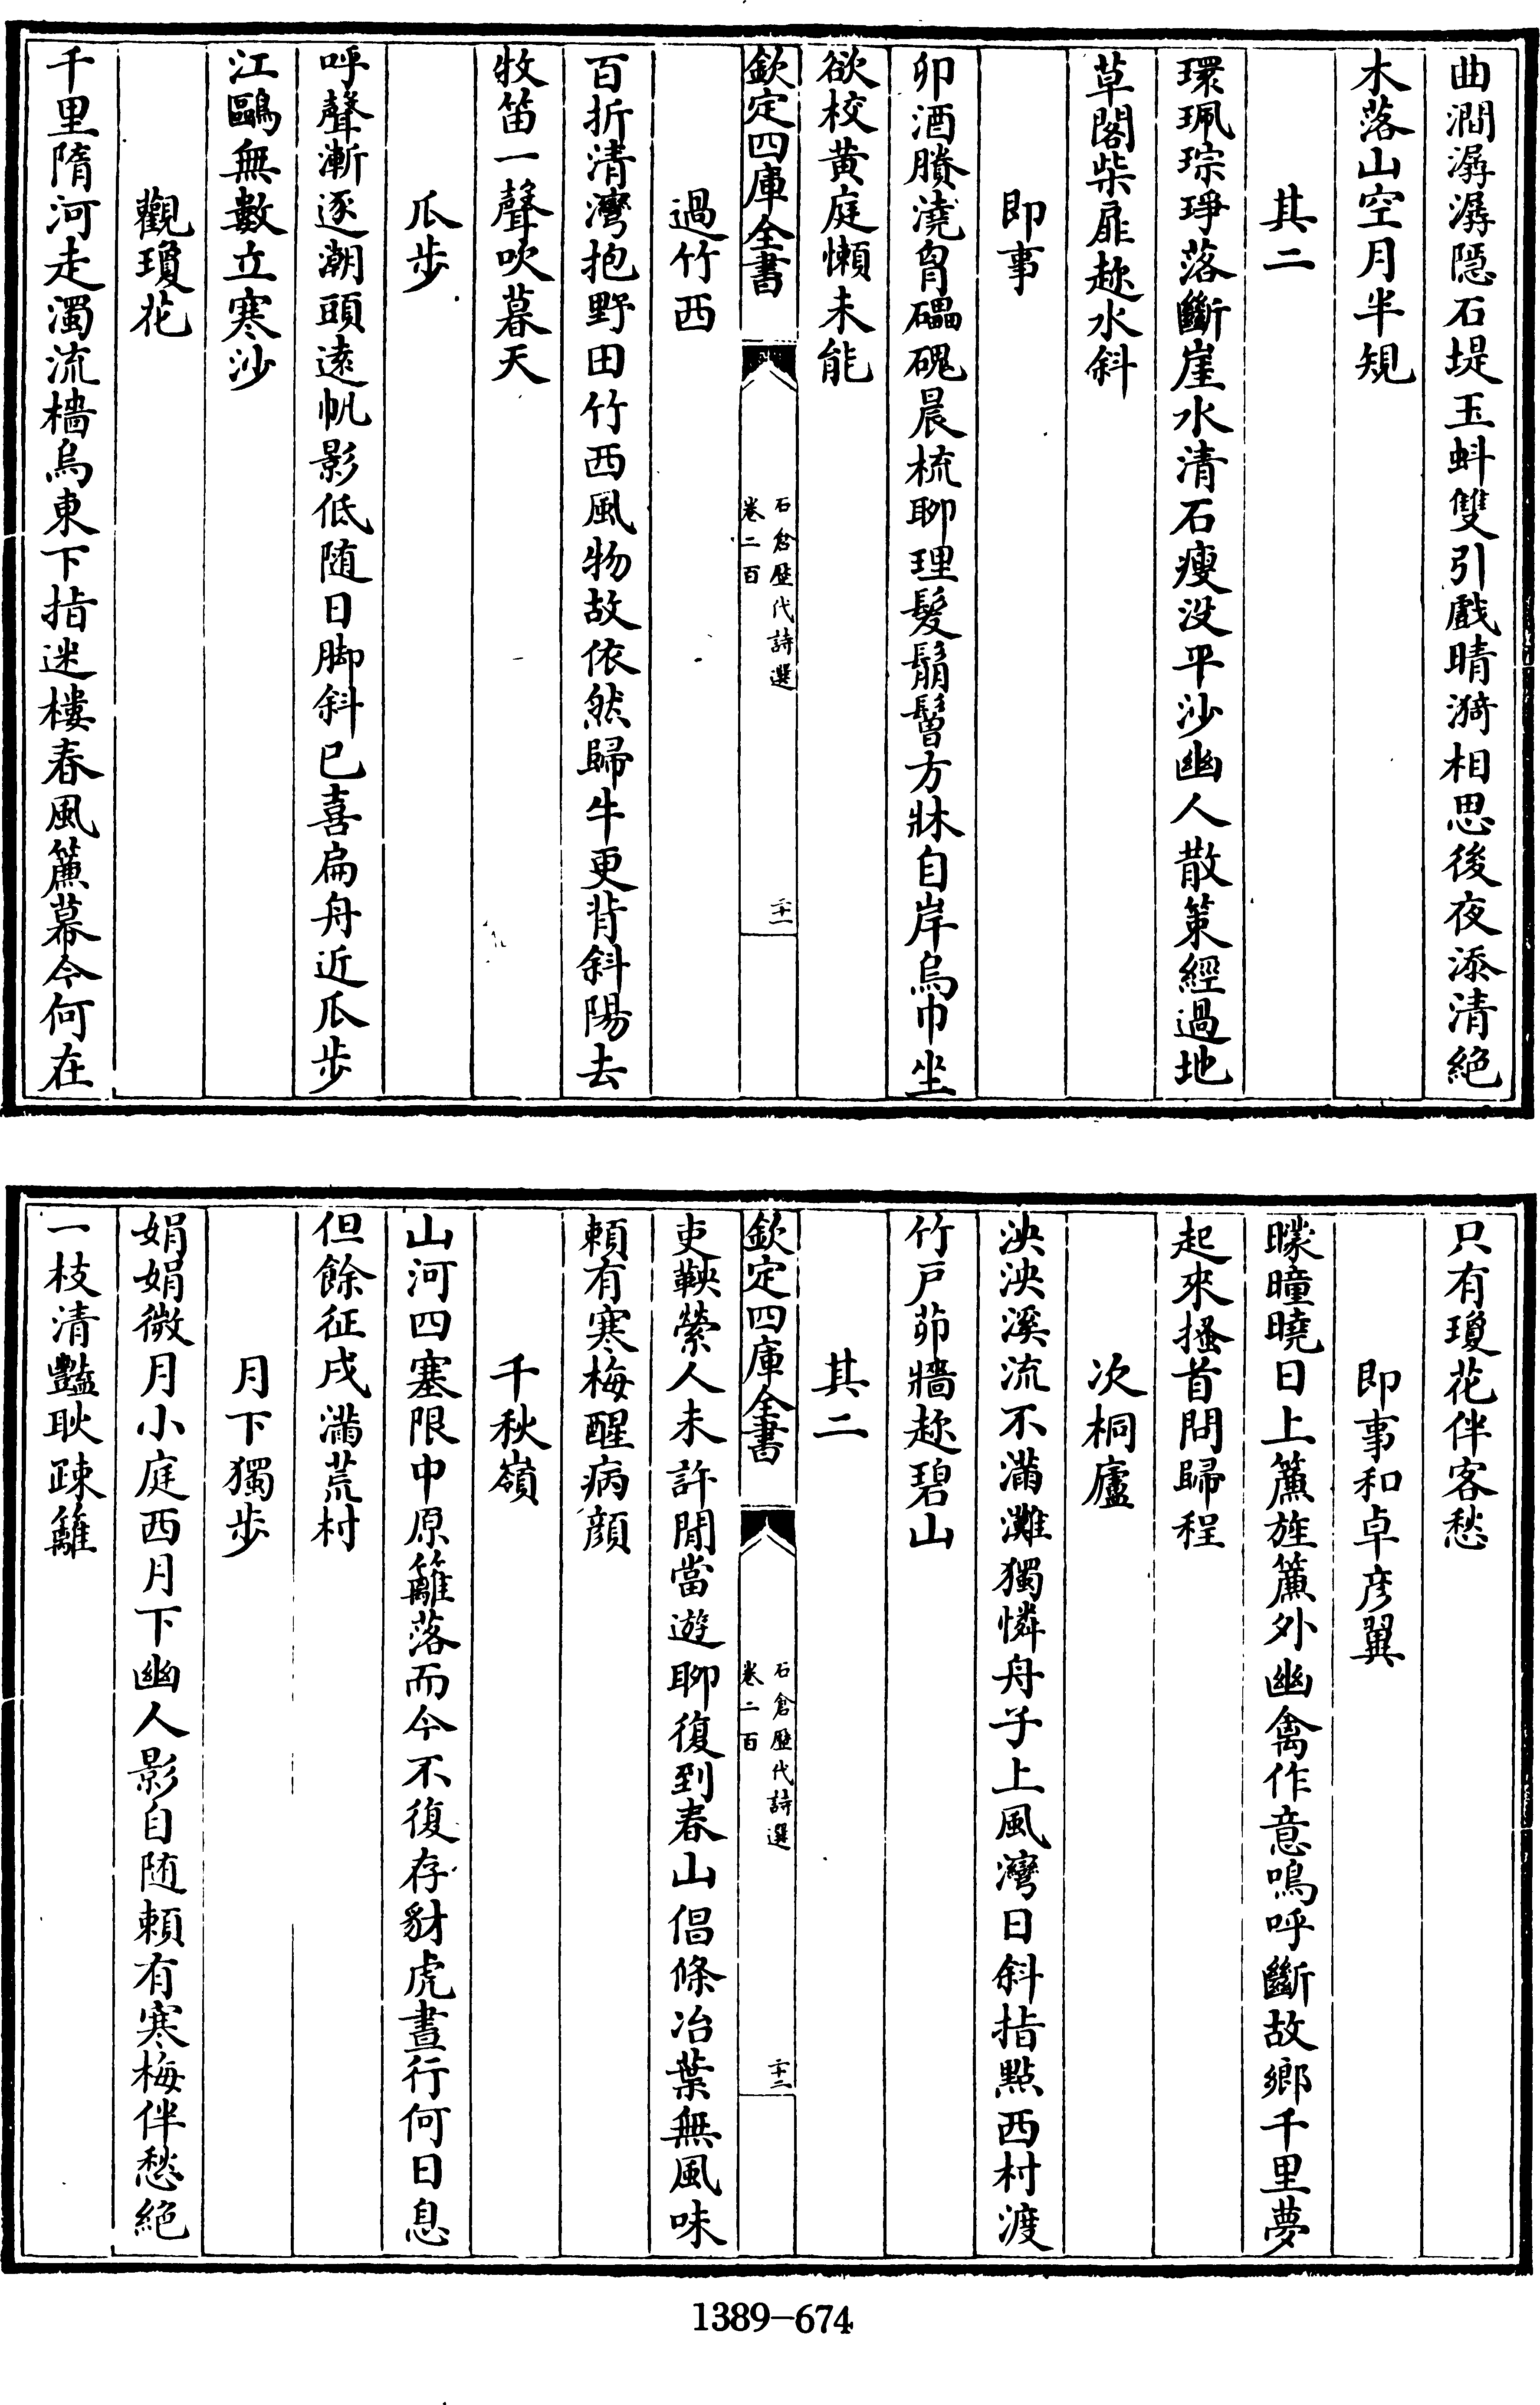 曲澗潺潺隠石堤玉蚪雙引戲晴漪相思後夜添清絶
木落山空月半規
其二
環珮琮琤落斷崖水清石瘦没平沙幽人散策經過地
草閣柴扉趂水斜
即事
卯酒賸澆胷礧磈晨梳聊理髮鬅鬙方牀自岸烏巾坐
欲校黄庭懶未能
欽定四庫全書
石倉歴代詩選
卷二百
二十一
過竹西
百折清灣抱野田竹西風物故依然歸牛更背斜陽去
牧笛一聲吹暮天
瓜步
呼聲漸逐潮頭遠帆影低随日脚斜已喜扁舟近瓜步
江鷗無數立寒沙
觀瓊花
千里隋河走濁流檣烏東下指迷樓春風簾幕今何在
只有瓊花伴客愁
即事和卓彦翼
曚曈曉日上簾旌簾外幽禽作意鳴呼斷故鄉千里夢
起來搔首問歸程
次桐廬
泱泱溪流不滿灘獨憐舟子上風灣日斜指點西村渡
竹戸茆牆趂碧山
其二
欽定四庫全書
石倉歴代詩選
卷二百
二十二
吏鞅縈人未許閒當遊聊復到春山倡條冶葉無風味
頼有寒梅醒病顔
千秋嶺
山河四塞限中原籬落而今不復存豺虎晝行何日息
但餘征戍滿荒村
月下獨步
娟娟微月小庭西月下幽人影自随頼有寒梅伴愁絶
一枝清豔耿疎籬
1389-674